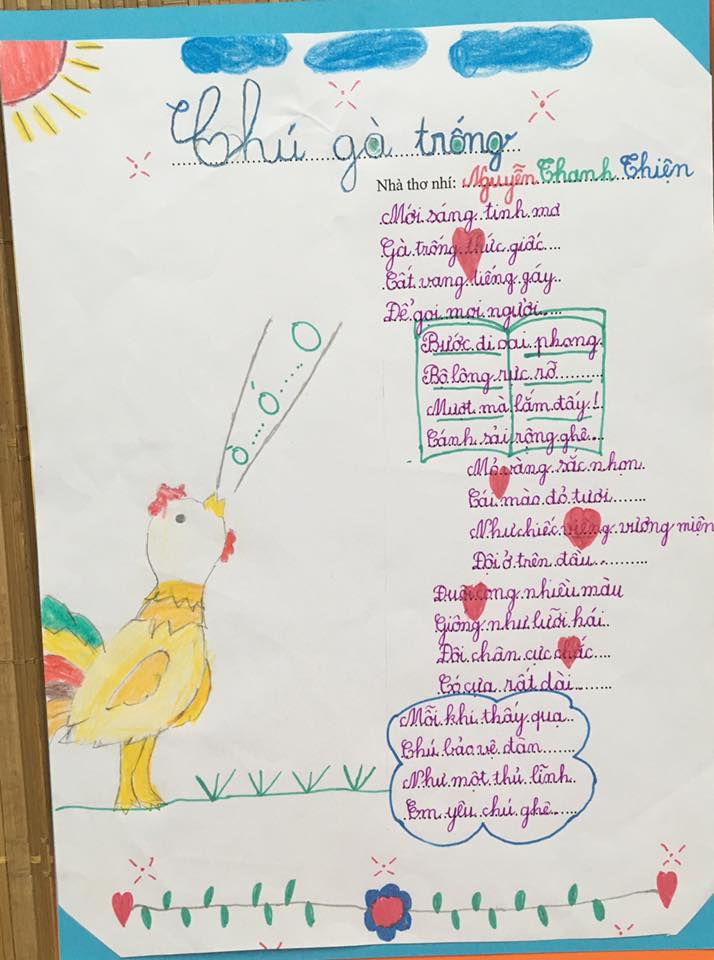 Chú gà trống
Nhà thơ nhí: Nguyễn Thanh Thiện
Mới sáng tinh mơ
Gà trống thức giấc....
Cất vang tiếng gáy..
Để gọi mọi người....
Bước đi oai phong
Bộ lông rực rỡ........
Mượt mà lắm đấy!
Cánh sải rộng ghê...
Mỏ vàng sắc nhọn.
Cái mào đỏ tươi.......
Như chiếc viềng vương miện
Đội ở trên đầu..........
Đuôi cong nhiều màu
Giống như lưỡi hái..
Đôi chân cực chắc....
Có cựa rất dài........
Mỗi khi thấy quạ..
Chú bảo vệ đàn.......
Như một thủ lĩnh..
Em yêu chú ghê.....
Ò......ó.....O